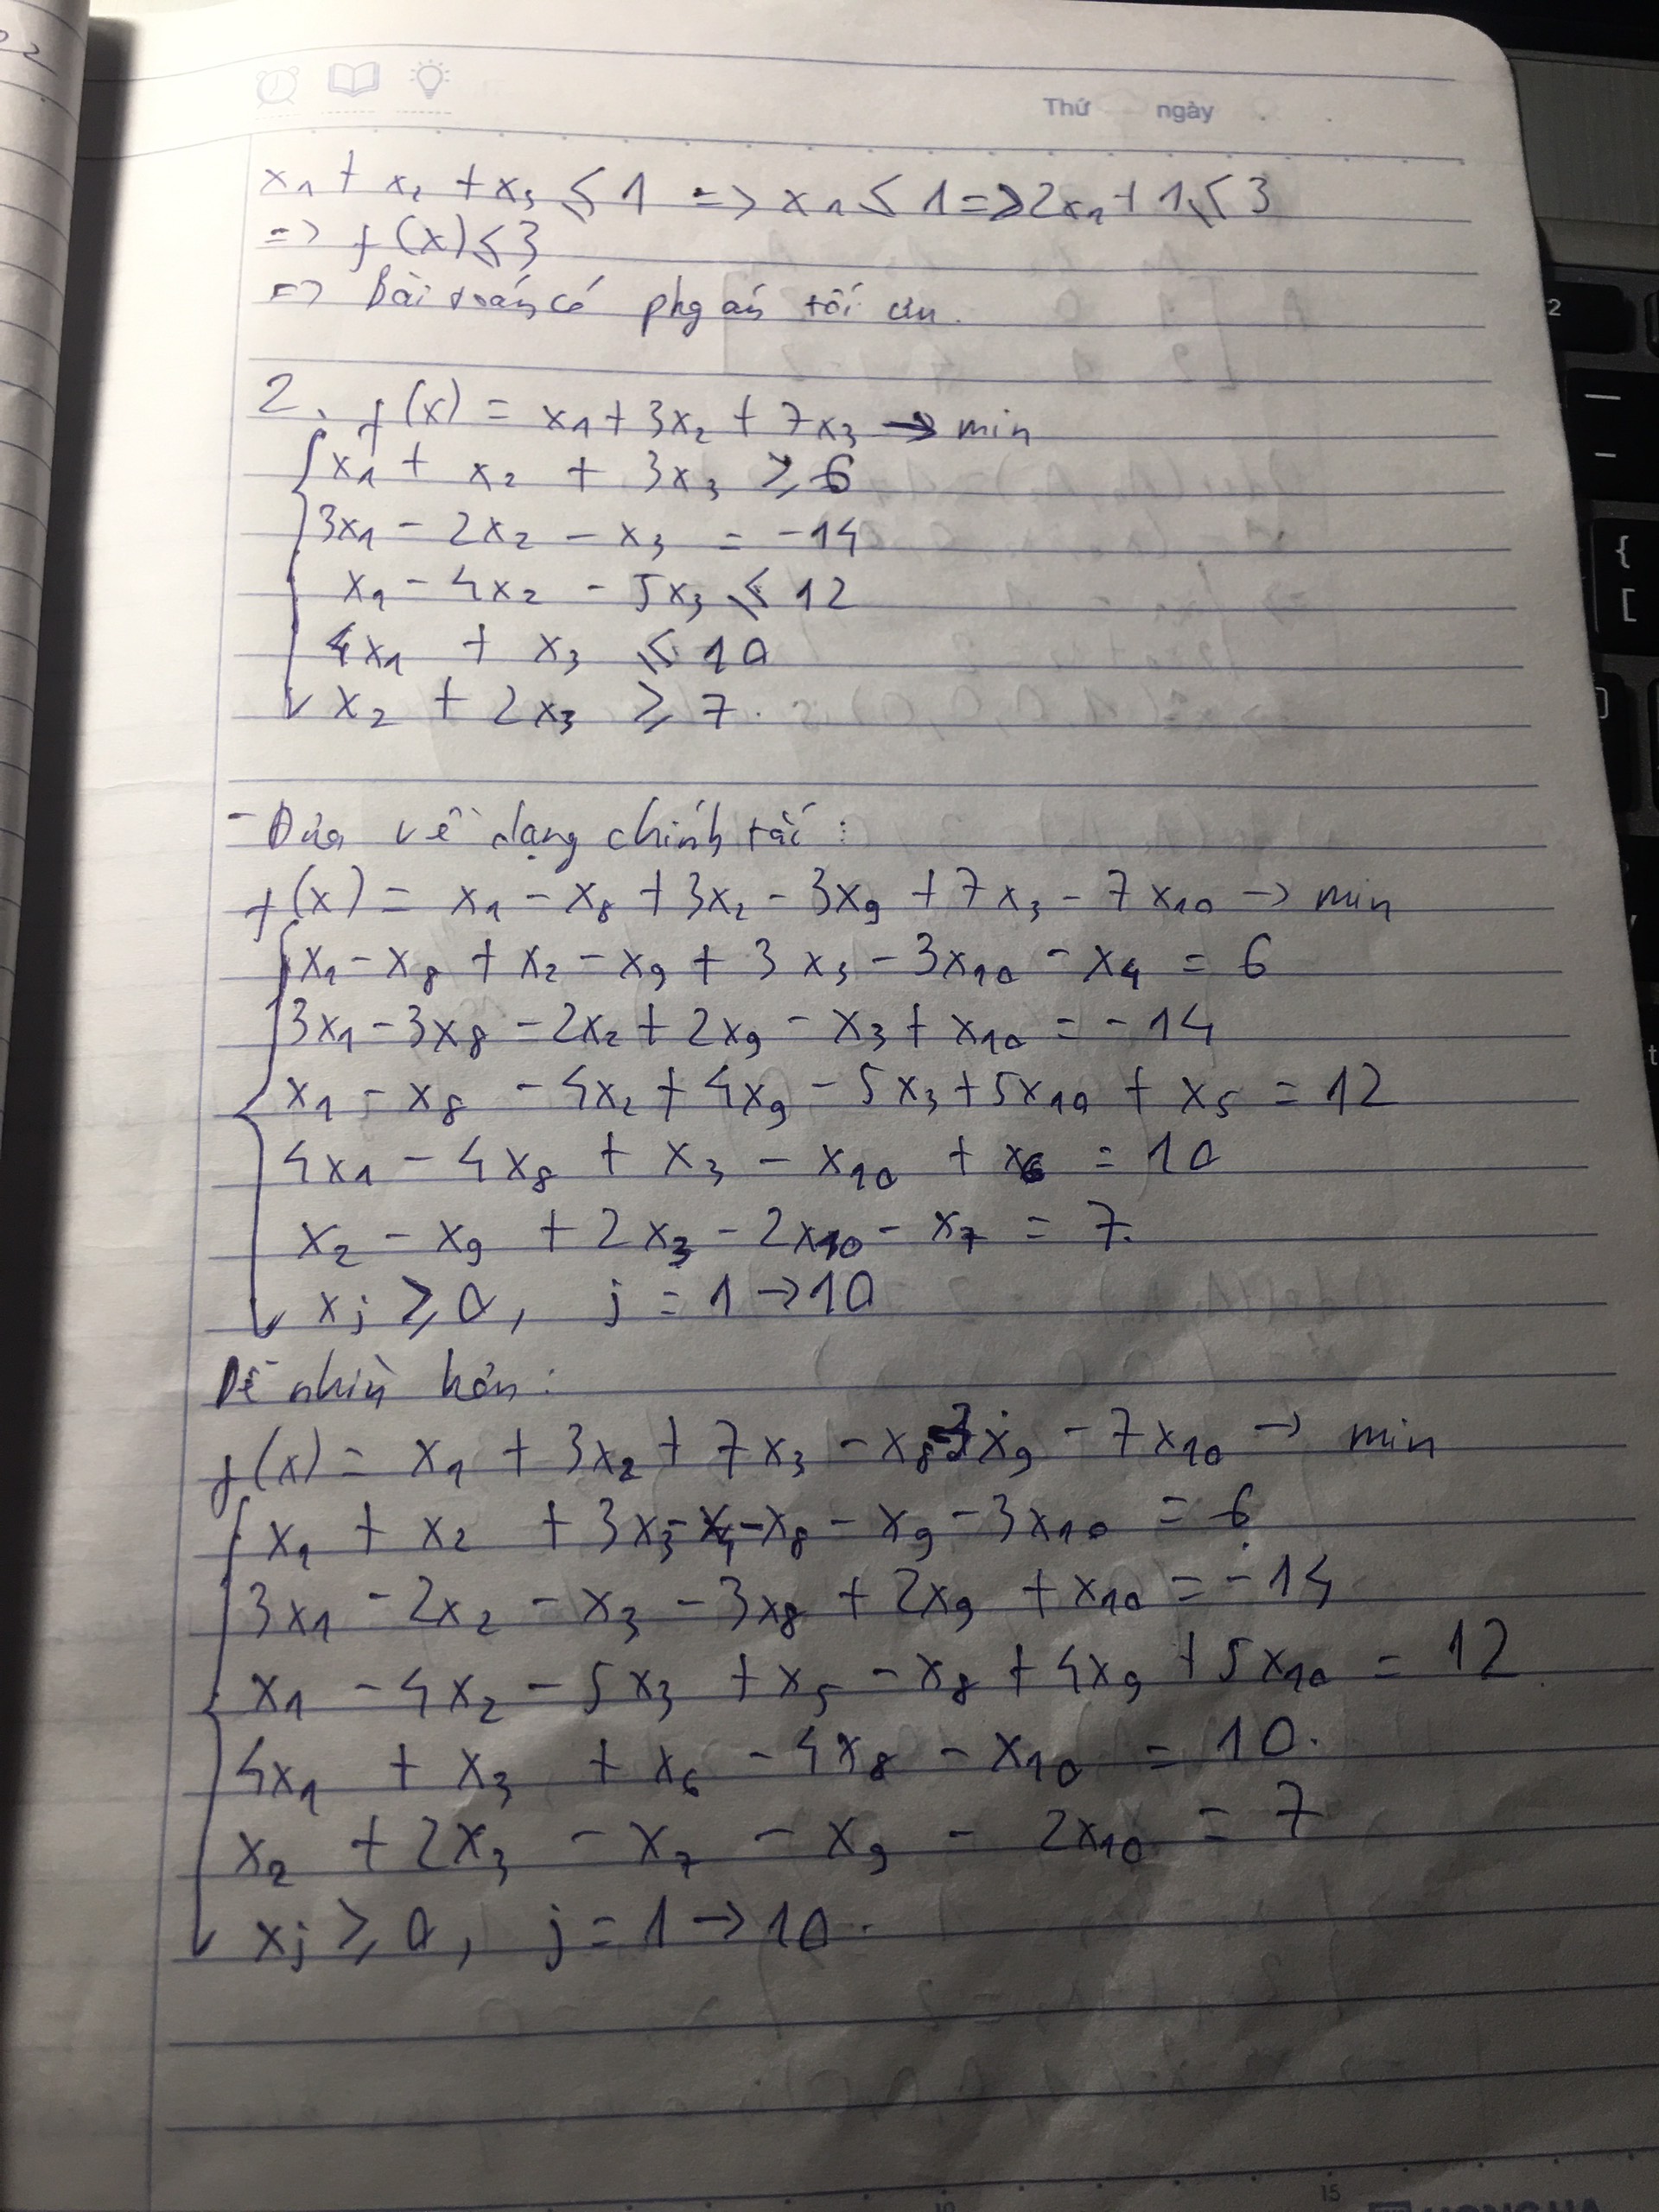 Thứ ngày
x₁ + x₂ + x₃ ≤ 1 => x₁ ≤ 1 => 2x₁ + 1 ≤ 3
=> f(x) ≤ 3
=> Bài toán có phg án tối ưu.
2. f(x) = x₁ + 3x₂ + 7x₃ → min
x₁ + x₂ + 3x₃ ≥ 6
3x₁ - 2x₂ - x₃ = -14
x₁ - 4x₂ - 5x₃ ≤ 12
4x₁ + x₃ ≤ 10
x₂ + 2x₃ ≥ 7.
- Đưa về dạng chính tắc :
f(x) = x₁ - x₈ + 3x₂ - 3x₉ + 7x₃ - 7x₁₀ → min
x₁ - x₈ + x₂ - x₉ + 3x₃ - 3x₁₀ - x₄ = 6
3x₁ - 3x₈ - 2x₂ + 2x₉ - x₃ + x₁₀ = -14
x₁ - x₈ - 4x₂ + 4x₉ - 5x₃ + 5x₁₀ + x₅ = 12
4x₁ - 4x₈ + x₃ - x₁₀ + x₆ = 10
x₂ - x₉ + 2x₃ - 2x₁₀ - x₇ = 7.
xⱼ ≥ 0, j = 1 → 10
Dễ nhìn hơn :
f(x) = x₁ + 3x₂ + 7x₃ - x₈ - 3x₉ - 7x₁₀ → min
x₁ + x₂ + 3x₃ - x₄ - x₈ - x₉ - 3x₁₀ = 6
3x₁ - 2x₂ - x₃ - 3x₈ + 2x₉ + x₁₀ = -14
x₁ - 4x₂ - 5x₃ + x₅ - x₈ + 4x₉ + 5x₁₀ = 12
4x₁ + x₃ + x₆ - 4x₈ - x₁₀ = 10.
x₂ + 2x₃ - x₇ - x₉ - 2x₁₀ = 7
xⱼ ≥ 0, j = 1 → 10.
10 15